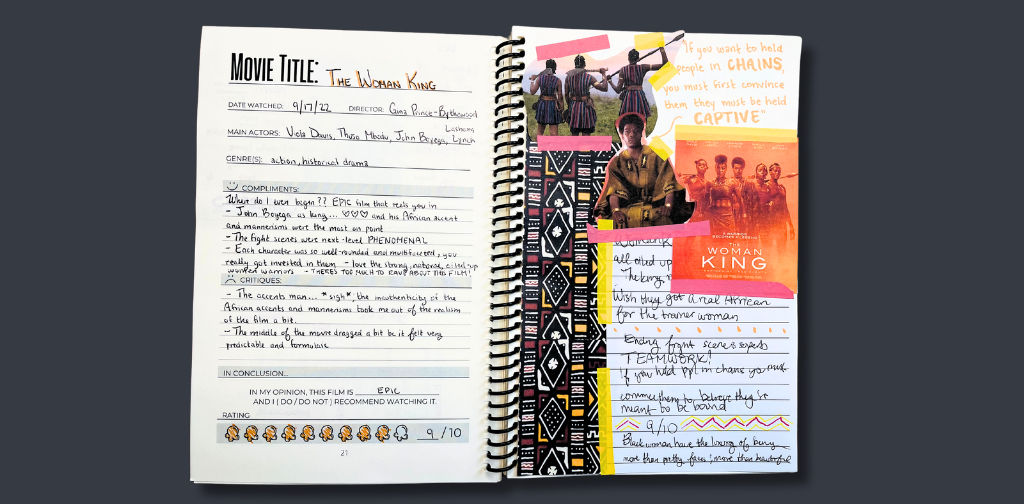 MOVIE TITLE: THE WOMAN KING
DATE WATCHED: 9/17/22 DIRECTOR: Gina Prince-Bythewood
MAIN ACTORS: Viola Davis, Thuso Mbedu, John Boyega, Lashana Lynch
GENRE(S): action, historical drama
COMPLIMENTS:
Where do I even begin?? EPIC film that reels you in
- John Boyega as king... ♡♡♡ and his African accent
and mannerisms were the most on point
- The fight scenes were next-level PHENOMENAL
- Each character was so well-rounded and multifaceted, you
really got invested in them - love the strong, natural, oiled-up
women warriors - THERE'S TOO MUCH TO RAVE ABOUT THIS FILM!
CRITIQUES:
- The accents man... *sigh*, the inauthenticity of the
African accents and mannerisms took me out of the realism
of the film a bit.
- The middle of the movie dragged a bit bc it felt very
predictable and formulaic
IN CONCLUSION...
IN MY OPINION, THIS FILM IS EPIC
AND I ( DO / DO NOT ) RECOMMEND WATCHING IT.
RATING
9 /10
21
"If you want to hold
people in CHAINS,
you must first convince
them they must be held
CAPTIVE"
THE
WOMAN
KING
all oiled up
The king
Wish they got a real African
for the trainer woman
Ending fight scene
TEAMWORK!
If you hold ppl in chains you must
convince them to believe they're
meant to be bound
9/10
Black woman have the luxury of being
more than pretty faces; more than beautiful